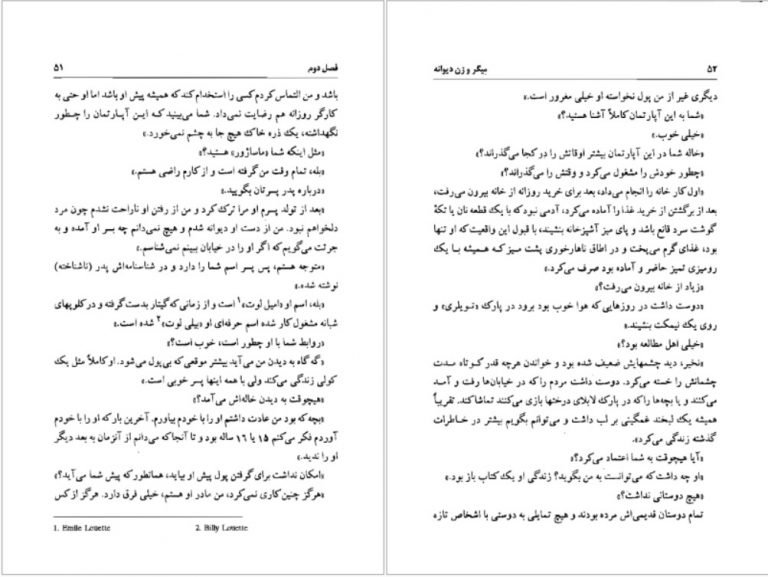 ۵۱ فصل دوم
باشد و من التماس کردم کسی را استخدام کند که همیشه پیش او باشد اما او حتی به
کارگر روزانه هم رضایت نمی‌داد. شما می‌بینید که ایـن آپـارتمان را چطور
نگهداشته، یک ذره خاک هیچ جا به چشم نمی‌خورد.»
«مثل اینکه شما «ماساژور» هستید؟»
«بله، تمام وقت من گرفته است و از کارم راضی هستم.»
«درباره پدر پسرتان بگویید.»
«بعد از تولد پسرم او مرا ترک کرد و من از رفتن او ناراحت نشدم چون مرد
دلخواهم نبود. من از دست او دیوانه شدم و هیچ نمی‌دانم چه بسر او آمده و به
جرئت می‌گویم که اگر او را در خیابان ببینم نمی‌شناسم.»
«متوجه هستم، پس پسر اسم شما را دارد و در شناسنامه‌اش پدر (ناشناخته)
نوشته شده.»
«بله، اسم او «امیل لوت»۱ است و از زمانی که گیتار بدست گرفته و در کلوپهای
شبانه مشغول کار شده اسم حرفه‌ای او «بیلی لوت»۲ شده است.»
«روابط شما با او چطور است، خوب است؟»
«گه گاه به دیدن من می‌آید بیشتر موقعی که بی‌پول می‌شود. او کاملاً مثل یک
کولی زندگی می‌کند ولی با همه اینها پسر خوبی است.»
«هیچوقت به دیدن خاله‌اش می‌آمد؟»
«بچه که بود من عادت داشتم او را با خودم بیاورم. آخرین بار که او را با خودم
آوردم فکر می‌کنم ۱۵ یا ۱۶ ساله بود و تا آنجا که می‌دانم از آنزمان به بعد دیگر
او را ندید.»
«امکان نداشت برای گرفتن پول پیش او بیاید، همانطور که پیش شما می‌آید؟»
«هرگز چنین کاری نمی‌کرد، من مادر او هستم، خیلی فرق دارد. هرگز از کس
1. Emile Louette 2. Billy Louette
۵۲ میگر و زن دیوانه
دیگری غیر از من پول نخواسته او خیلی مغرور است.»
«شما به این آپارتمان کاملاً آشنا هستید؟»
«خیلی خوب.»
«خاله شما در این آپارتمان بیشتر اوقاتش را در کجا می‌گذراند؟»
«چطور خودش را مشغول می‌کرد و وقتش را می‌گذراند؟»
«اول کار خانه را انجام می‌داد، بعد برای خرید روزانه از خانه بیرون می‌رفت،
بعد از برگشتن از خرید غذا را آماده می‌کرد، آدمی نبود که با یک قطعه نان یا تکهٔ
گوشت سرد قانع باشد و پای میز آشپزخانه بنشیند، با قبول این واقعیت که او تنها
بود، غذای گرم می‌پخت و در اطاق ناهارخوری پشت میز که همیشه با یک
رومیزی تمیز حاضر و آماده بود صرف می‌کرد.»
«زیاد از خانه بیرون می‌رفت؟»
«دوست داشت در روزهایی که هوا خوب بود برود در پارک «تویلری» و
روی یک نیمکت بنشیند.»
«خیلی اهل مطالعه بود؟»
«نخیر، دید چشمهایش ضعیف شده بود و خواندن هرچه قدر کوتاه مدت
چشمانش را خسته می‌کرد. دوست داشت مردم را که در خیابان‌ها رفت و آمد
می‌کنند و یا بچه‌ها را که در پارک لابلای درختها بازی می‌کنند تماشا کند. تقریباً
همیشه یک لبخند غمگینی بر لب داشت و می‌توانم بگویم بیشتر در خاطرات
گذشته زندگی می‌کرد.»
«آیا هیچوقت به شما اعتماد می‌کرد؟»
«او چه داشت که می‌توانست به من بگوید؟ زندگی او یک کتاب باز بود.»
«هیچ دوستانی نداشت؟»
تمام دوستان قدیمی‌اش مرده بودند و هیچ تمایلی به دوستی با اشخاص تازه